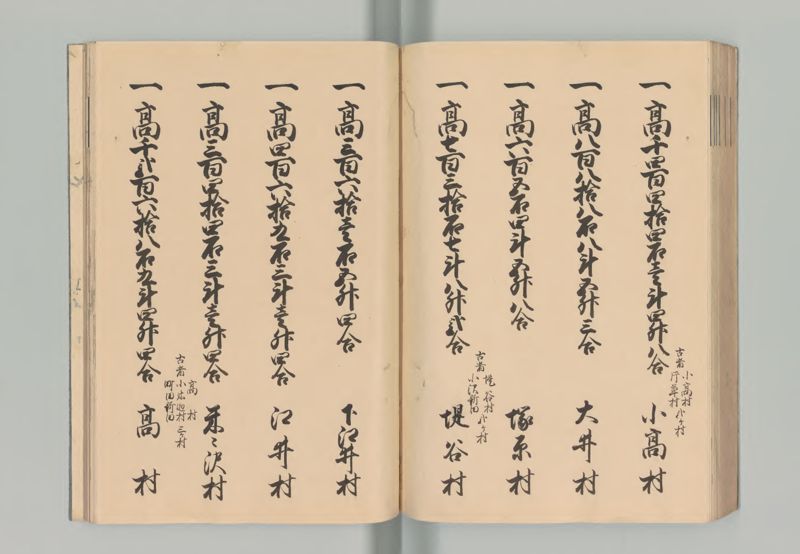 一高千四百四拾四石壱斗四升八合
古者 小高村
片草村 弐ヶ村
小高村
一高八百八拾八石八斗五升三合
大井村
一高六百五石四斗五升八合
塚原村
一高七百三拾石七斗八升弐合
古者 堤谷村
小沢新田 弐ヶ村
堤谷村
一高三百六拾壱石五升四合
下江井村
一高四百六拾五石三斗壱升四合
江井村
一高三百四拾四石三斗壱升四合
米々沢村
一高千弐百六拾八石九斗四升四合
古者 高村
村 三ヶ村
町田新田
高村